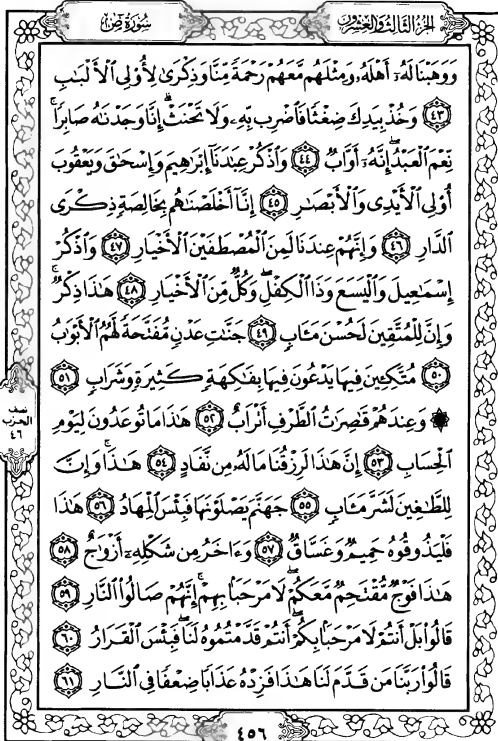 سُورَةُ صٓ
الجزء الثالث والعشرون
وَوَهَبْنَا لَهُۥٓ أَهْلَهُۥ وَمِثْلَهُم مَّعَهُمْ رَحْمَةً مِّنَّا وَذِكْرَىٰ لِأُو۟لِى ٱلْأَلْبَٰبِ
﴿٤٣﴾ وَخُذْ بِيَدِكَ ضِغْثًا فَٱضْرِب بِّهِۦ وَلَا تَحْنَثْ ۗ إِنَّا وَجَدْنَٰهُ صَابِرًا ۚ
نِّعْمَ ٱلْعَبْدُ ۖ إِنَّهُۥٓ أَوَّابٌ ﴿٤٤﴾ وَٱذْكُرْ عِبَٰدَنَآ إِبْرَٰهِيمَ وَإِسْحَٰقَ وَيَعْقُوبَ
أُو۟لِى ٱلْأَيْدِى وَٱلْأَبْصَٰرِ ﴿٤٥﴾ إِنَّآ أَخْلَصْنَٰهُم بِخَالِصَةٍ ذِكْرَى
ٱلدَّارِ ﴿٤٦﴾ وَإِنَّهُمْ عِندَنَا لَمِنَ ٱلْمُصْطَفَيْنَ ٱلْأَخْيَارِ ﴿٤٧﴾ وَٱذْكُرْ
إِسْمَٰعِيلَ وَٱلْيَسَعَ وَذَا ٱلْكِفْلِ ۖ وَكُلٌّ مِّنَ ٱلْأَخْيَارِ ﴿٤٨﴾ هَٰذَا ذِكْرٌ ۚ
وَإِنَّ لِلْمُتَّقِينَ لَحُسْنَ مَـَٔابٍ ﴿٤٩﴾ جَنَّٰتِ عَدْنٍ مُّفَتَّحَةً لَّهُمُ ٱلْأَبْوَٰبُ
﴿٥٠﴾ مُتَّكِـِٔينَ فِيهَا يَدْعُونَ فِيهَا بِفَٰكِهَةٍ كَثِيرَةٍ وَشَرَابٍ ﴿٥١﴾
۞ وَعِندَهُمْ قَٰصِرَٰتُ ٱلطَّرْفِ أَتْرَابٌ ﴿٥٢﴾ هَٰذَا مَا تُوعَدُونَ لِيَوْمِ
ٱلْحِسَابِ ﴿٥٣﴾ إِنَّ هَٰذَا لَرِزْقُنَا مَا لَهُۥ مِن نَّفَادٍ ﴿٥٤﴾ هَٰذَا ۚ وَإِنَّ
لِلطَّٰغِينَ لَشَرَّ مَـَٔابٍ ﴿٥٥﴾ جَهَنَّمَ يَصْلَوْنَهَا فَبِئْسَ ٱلْمِهَادُ ﴿٥٦﴾ هَٰذَا
فَلْيَذُوقُوهُ حَمِيمٌ وَغَسَّاقٌ ﴿٥٧﴾ وَءَاخَرُ مِن شَكْلِهِۦٓ أَزْوَٰجٌ ﴿٥٨﴾
هَٰذَا فَوْجٌ مُّقْتَحِمٌ مَّعَكُمْ ۖ لَا مَرْحَبًۢا بِهِمْ ۚ إِنَّهُمْ صَالُوا۟ ٱلنَّارِ ﴿٥٩﴾
قَالُوا۟ بَلْ أَنتُمْ لَا مَرْحَبًۢا بِكُمْ ۖ أَنتُمْ قَدَّمْتُمُوهُ لَنَا ۖ فَبِئْسَ ٱلْقَرَارُ ﴿٦٠﴾
قَالُوا۟ رَبَّنَا مَن قَدَّمَ لَنَا هَٰذَا فَزِدْهُ عَذَابًا ضِعْفًا فِى ٱلنَّارِ ﴿٦١﴾
نصف
الحزب
٤٦
٤٥٦